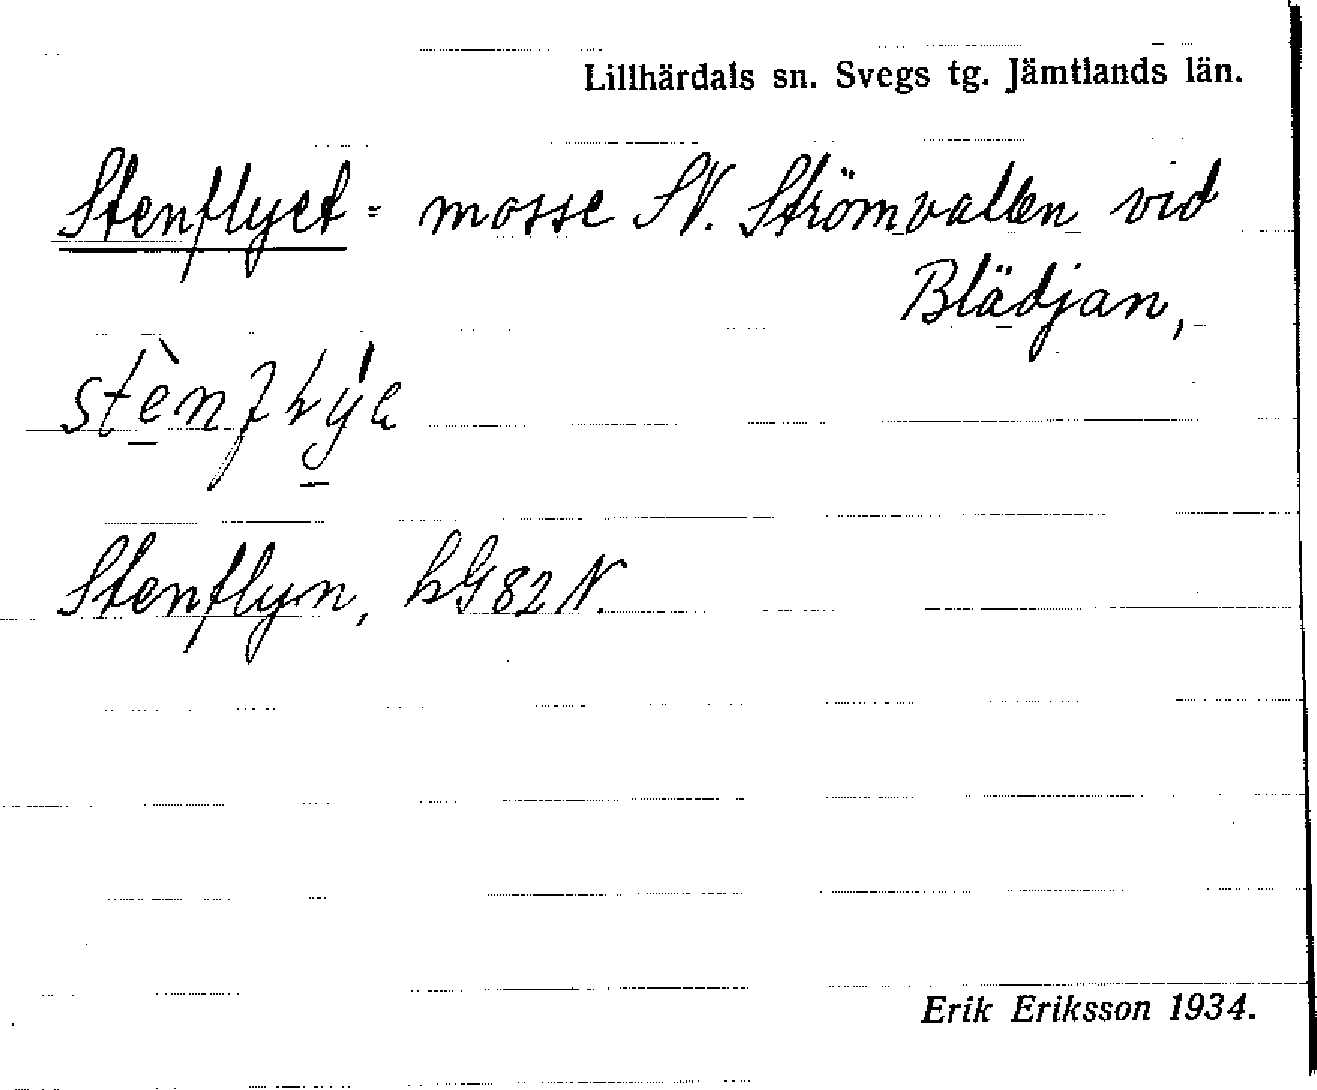 Lillhärdals sn. Svegs tg. Jämtlands län.
Stenflyet = mosse SV. Strömvallen vid
Blädjan,
Stenflyn, hG82N.
Erik Eriksson 1934.